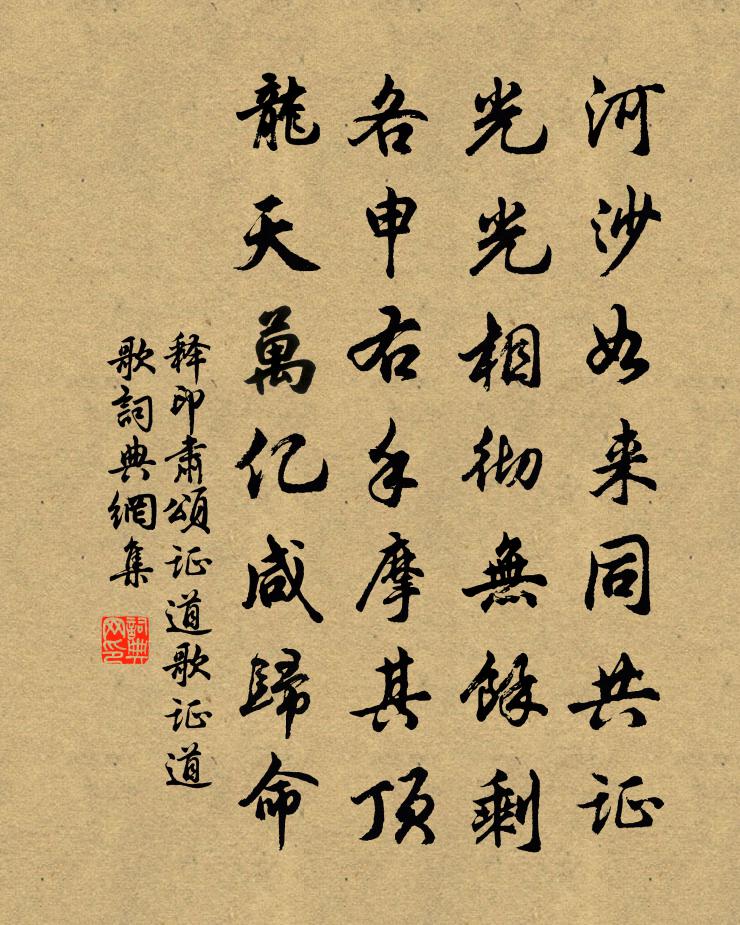 河沙如来同共证
光光相彻無餘剩
各申右手摩其顶
龍天萬亿咸歸命
释印肃頌证道歌证道
歌詞典網集
詞典
网印